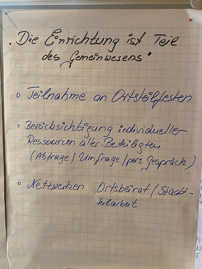 „Die Einrichtung ist Teil
des Gemeinwesens"
o Teilnahme an Ortsteilfesten
o Berücksichtigung individueller
Ressourcen aller Beteiligten
(Abfrage/Umfrage/pers. Gespräch)
o Netzwerken Ortsbeirat/Stadt-
teilarbeit